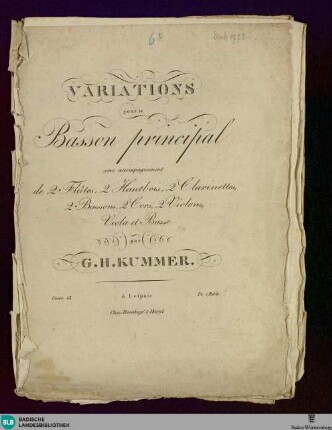 6
VARIATIONS
pour le
Basson principal
avec accompagnement
de 2 Flûtes, 2 Hautbois, 2 Clarinettes,
2 Bassons, 2 Cors, 2 Violons,
Viola et Basse
par
G. H. KUMMER.
à Leipsic
Chez Breitkopf & Härtel
BLB BADISCHE
LANDESBIBLIOTHEK
Baden-Württemberg